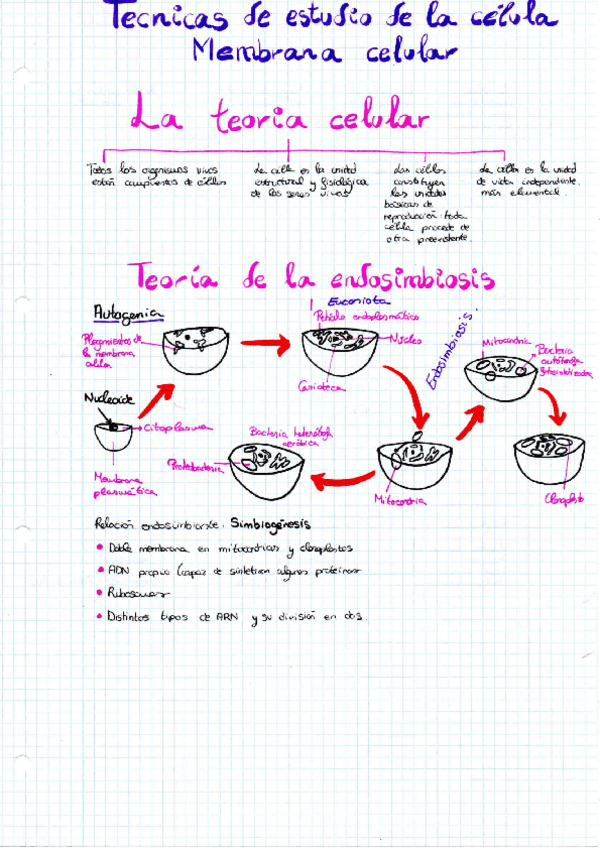 Tecnicas de estudio de la célula
Membrana celular
La teoría celular
Todos los organismos vivos
están compuestos de células
La célula es la unidad
estructural y fisiológica
de los seres vivos
Las células
constituyen
las unidades
básicas de
reproducción: toda
célula procede de
otra preexistente.
La célula es la unidad
de vida independiente
más elemental
Teoría de la endosimbiosis
Autogenia
Eucariota
Retículo endoplasmático
Núcleo
Plegamientos de
la membrana
celular
Carioteca
Endosimbiosis.
Mitocondria
Bacteria
autótrofa
fotosintetizadora
Nucleoide
Citoplasma
Membrana
plasmática
Bacteria heterótrofa
aeróbica
Protobacteria
Mitocondria
Cloroplasto
Relación endosimbionte: Simbiogénesis
• Doble membrana en mitocondrias y cloroplastos
• ADN propio (capaz de sintetizar algunas proteínas
• Ribosomas
• Distintos tipos de ARN y su división en dos.